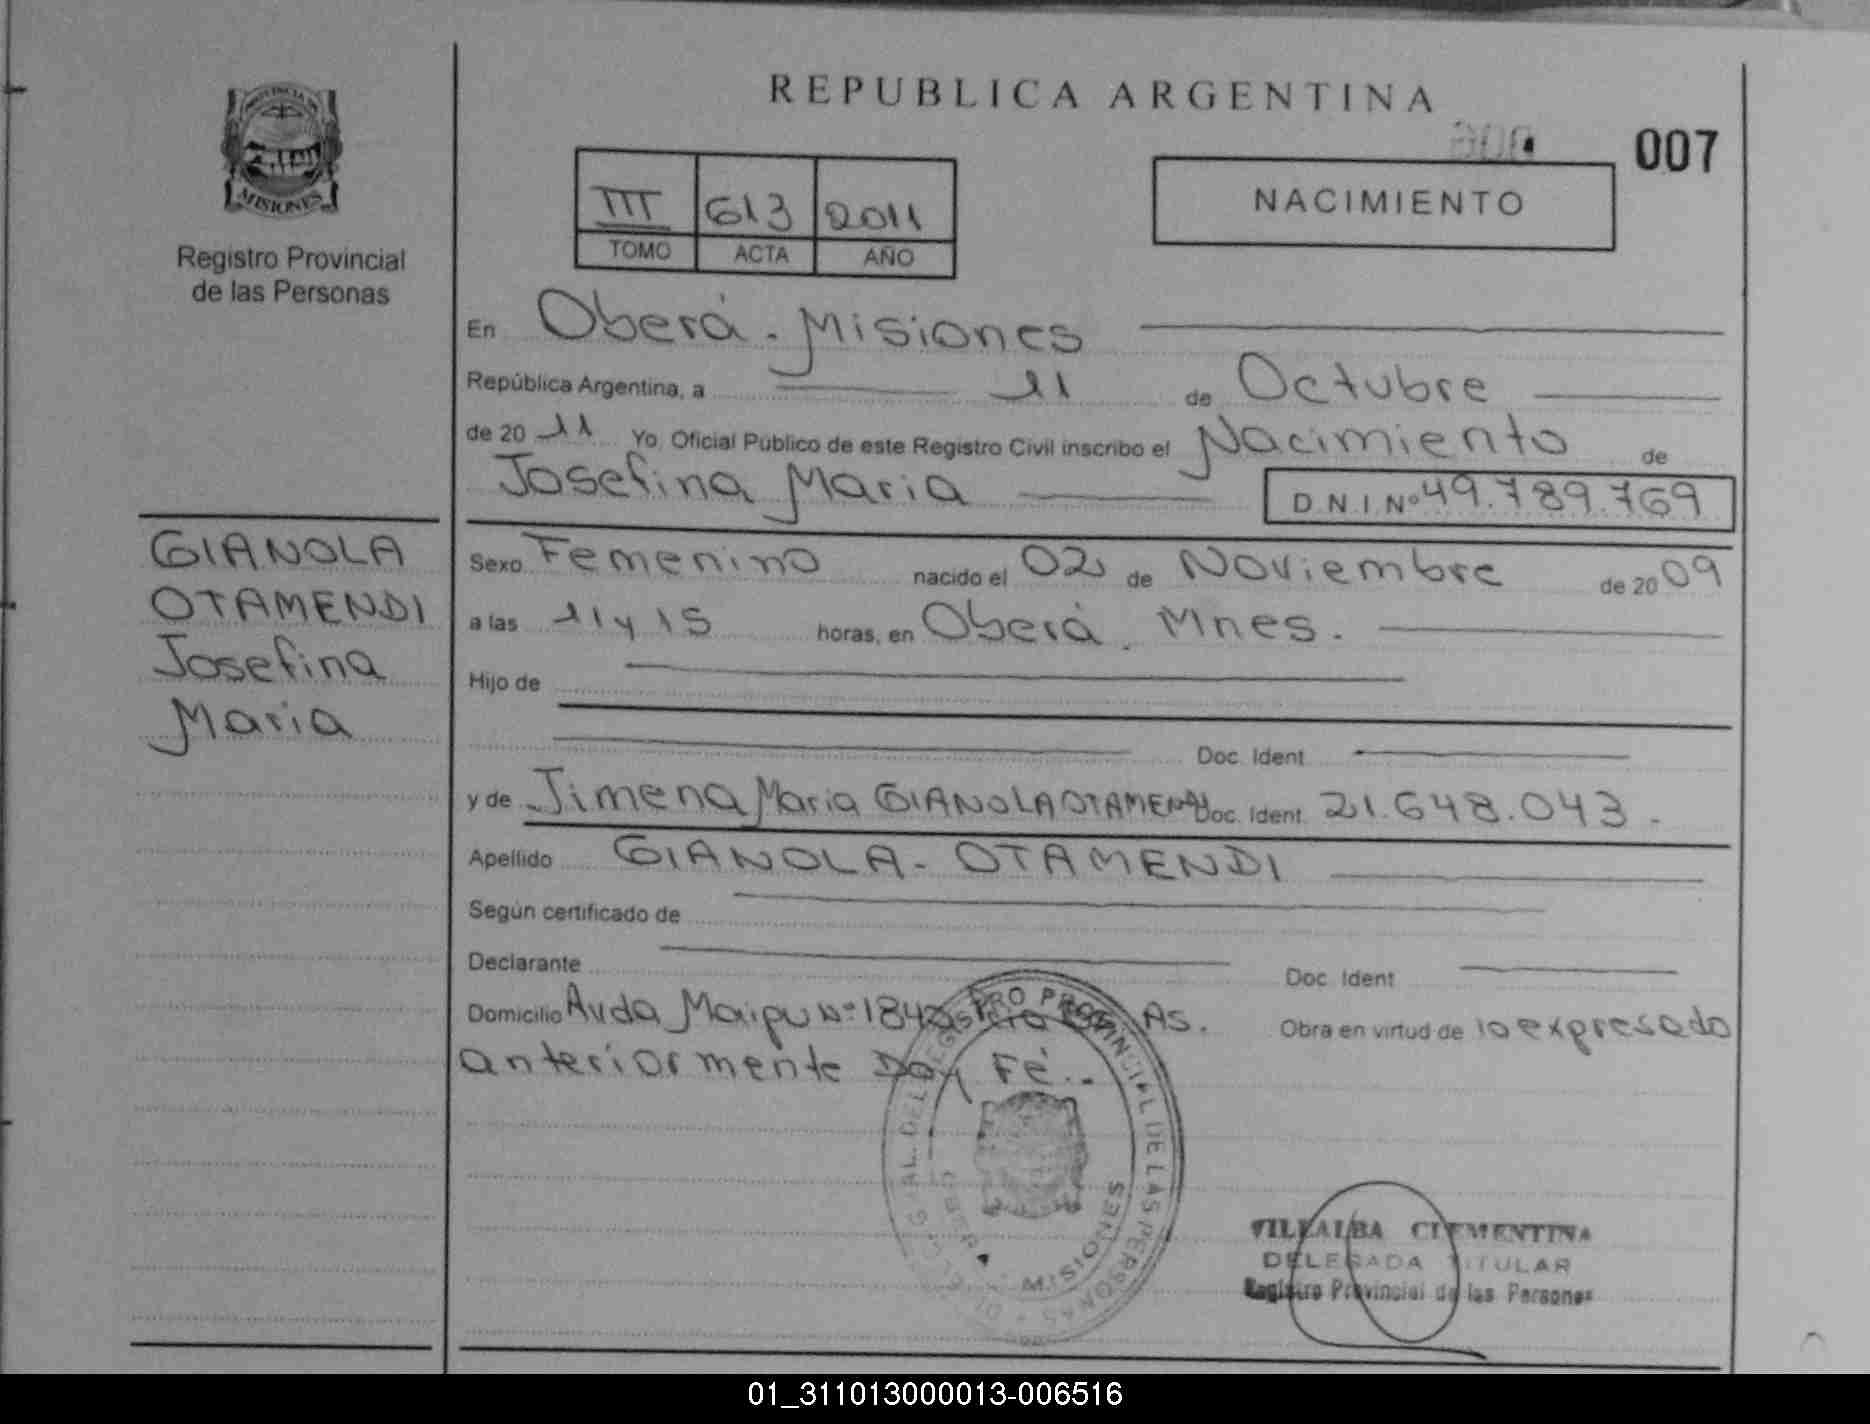 REPUBLICA ARGENTINA
007
PROVINCIA DE
MISIONES
Registro Provincial
de las Personas
III 613 2011
TOMO ACTA AÑO
NACIMIENTO
En Oberá - Misiones
República Argentina, a 11 de Octubre
de 20 11 Yo, Oficial Público de este Registro Civil inscribo el Nacimiento de
Josefina Maria D.N.I.Nº 49.789.769
GIANOLA
OTAMENDI
Josefina
Maria
Sexo Femenino nacido el 02 de Noviembre de 20 09
a las 11 y 15 horas, en Oberá. Mnes.
Hijo de
Doc. Ident
y de Jimena Maria GIANOLA OTAMENDI Doc. Ident. 21.648.043.
Apellido GIANOLA - OTAMENDI
Según certificado de
Declarante Doc. Ident
Domicilio Avda Maipu Nº 184 As. Obra en virtud de lo expresado
anteriormente Doy Fé.
PROVINCIAL DE LAS PERSONAS
MISIONES
VILLALBA CLEMENTINA
DELEGADA TITULAR
Registro Provincial de las Personas
01_311013000013-006516